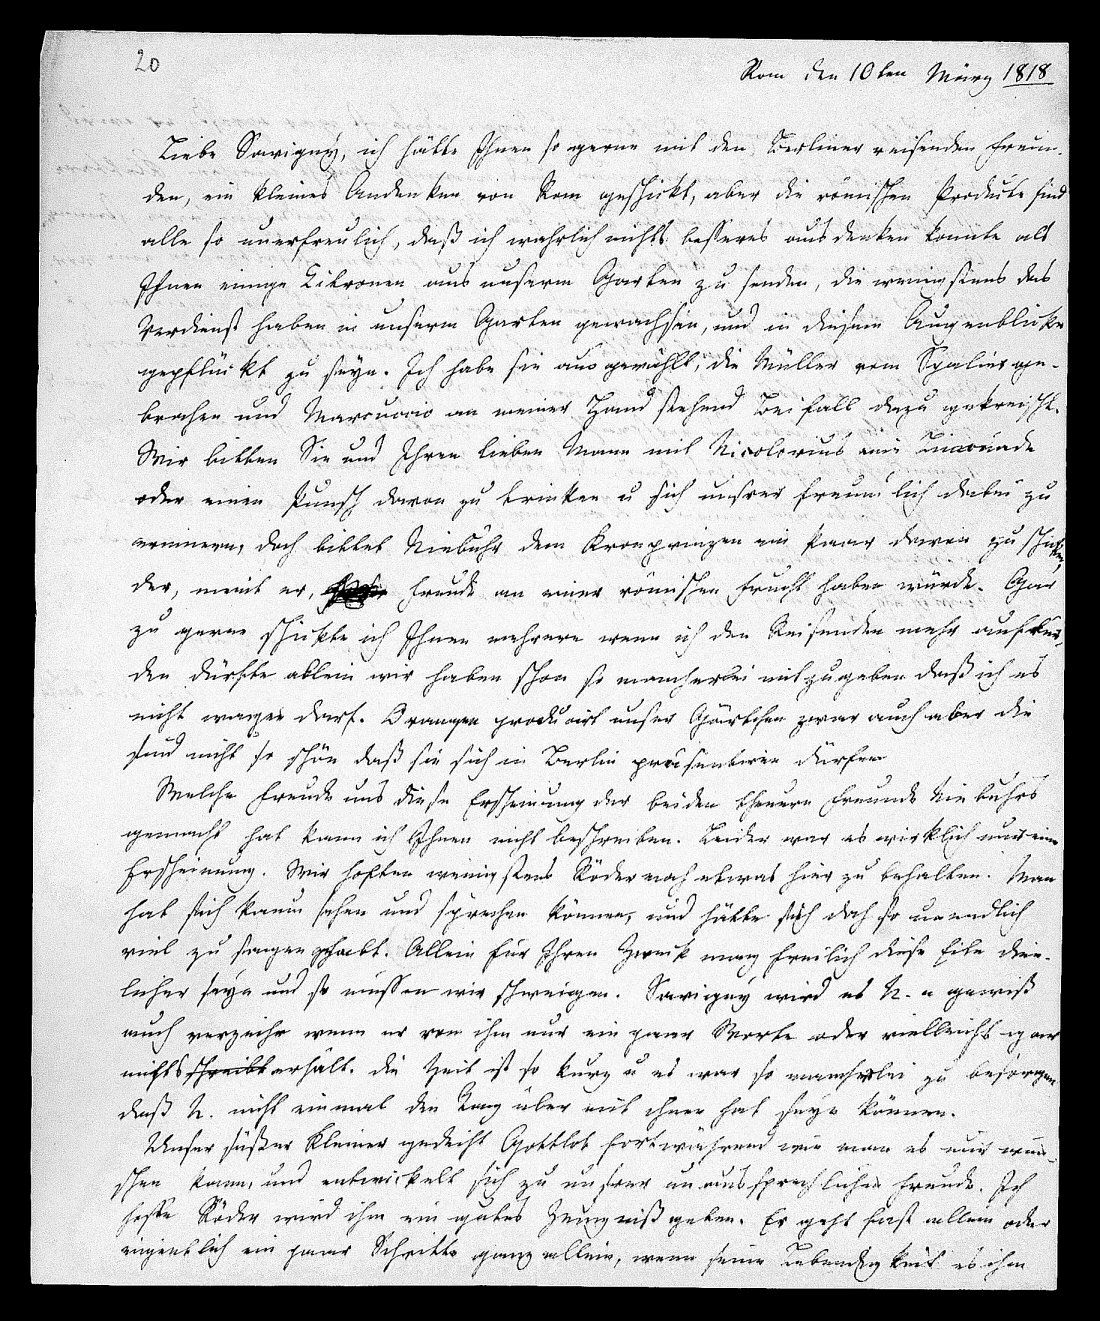 20
Rom den 10ten März 1818
Liebe Savigny, ich hätte Ihnen so gerne mit den Berliner reisenden Freun-
den, ein kleines Andenken von Rom geschickt, aber die römischen Produkte sind
alle so unerfreulich, daß ich wahrlich nichts besseres ausdenken konnte als
Ihnen einige Citronen aus unserm Garten zu senden, die wenigstens das
Verdienst haben in unserm Garten gewachsen, und in diesem Augenblicke
gepflückt zu seyn. Ich habe sie ausgewählt, die Müller vom Spalier ge-
brochen und Marcuccio an meiner Hand stehend Beifall dazu gekreischt.
Wir bitten Sie und Ihren lieben Mann mit Nicolovius eine Limonade
oder einen Punsch davon zu trinken u sich unsrer freundlich dabei zu
erinnern, doch bittet Niebuhr dem Kronprinzen ein Paar davon zu schicken,
der, meint er, Freude an einer römischen Frucht haben würde. Gar
zu gerne schickte ich Ihnen mehrere wenn ich den Reisenden mehr aufbür-
den dürfte allein wir haben schon so mancherlei mitzugeben daß ich es
nicht wagen darf. Orangen producirt unser Gärtchen zwar auch aber die
sind nicht so schön daß sie sich in Berlin präsentiren dürfen
Welche Freude uns diese Erscheinung der beiden theuern Freunde Niebuhrs
gemacht hat kann ich Ihnen nicht beschreiben. Leider war es wirklich nur eine
Erscheinung. Wir hofften wenigstens Röder noch etwas hier zu behalten. Man
hat sich kaum sehen und sprechen können, und hätte sich doch so unendlich
viel zu sagen gehabt. Allein für Ihren Zweck mag freilich diese Eile dien-
licher seyn und so müssen wir schweigen. Savigny wird es N. gewiß
auch verzeihn wenn er von ihm nur ein paar Worte oder vielleicht gar
nichts schreibt erhält. die Zeit ist so kurz u es war so mancherlei zu besorgen
daß N. nicht einmal den Tag über mit ihnen hat seyn können.
Unser süßer Kleiner gedeiht Gottlob fortwährend wie man es nur wün-
schen kann, und entwickelt sich zu unsrer unaussprechlichen Freude. Ich
hoffe Röder wird ihm ein gutes Zeugniß geben. Er geht fast allein oder
eigentlich ein paar Schritte ganz allein, wenn seine Lebendigkeit es ihm